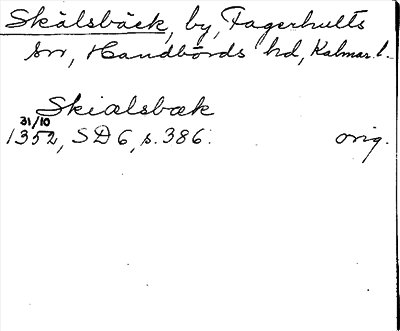 Skälsbäck, by, Fagerhults
sn, Handbörds hd, Kalmar l.
Skiælsbæk
31/10
1352, SD 6, s. 386. orig.